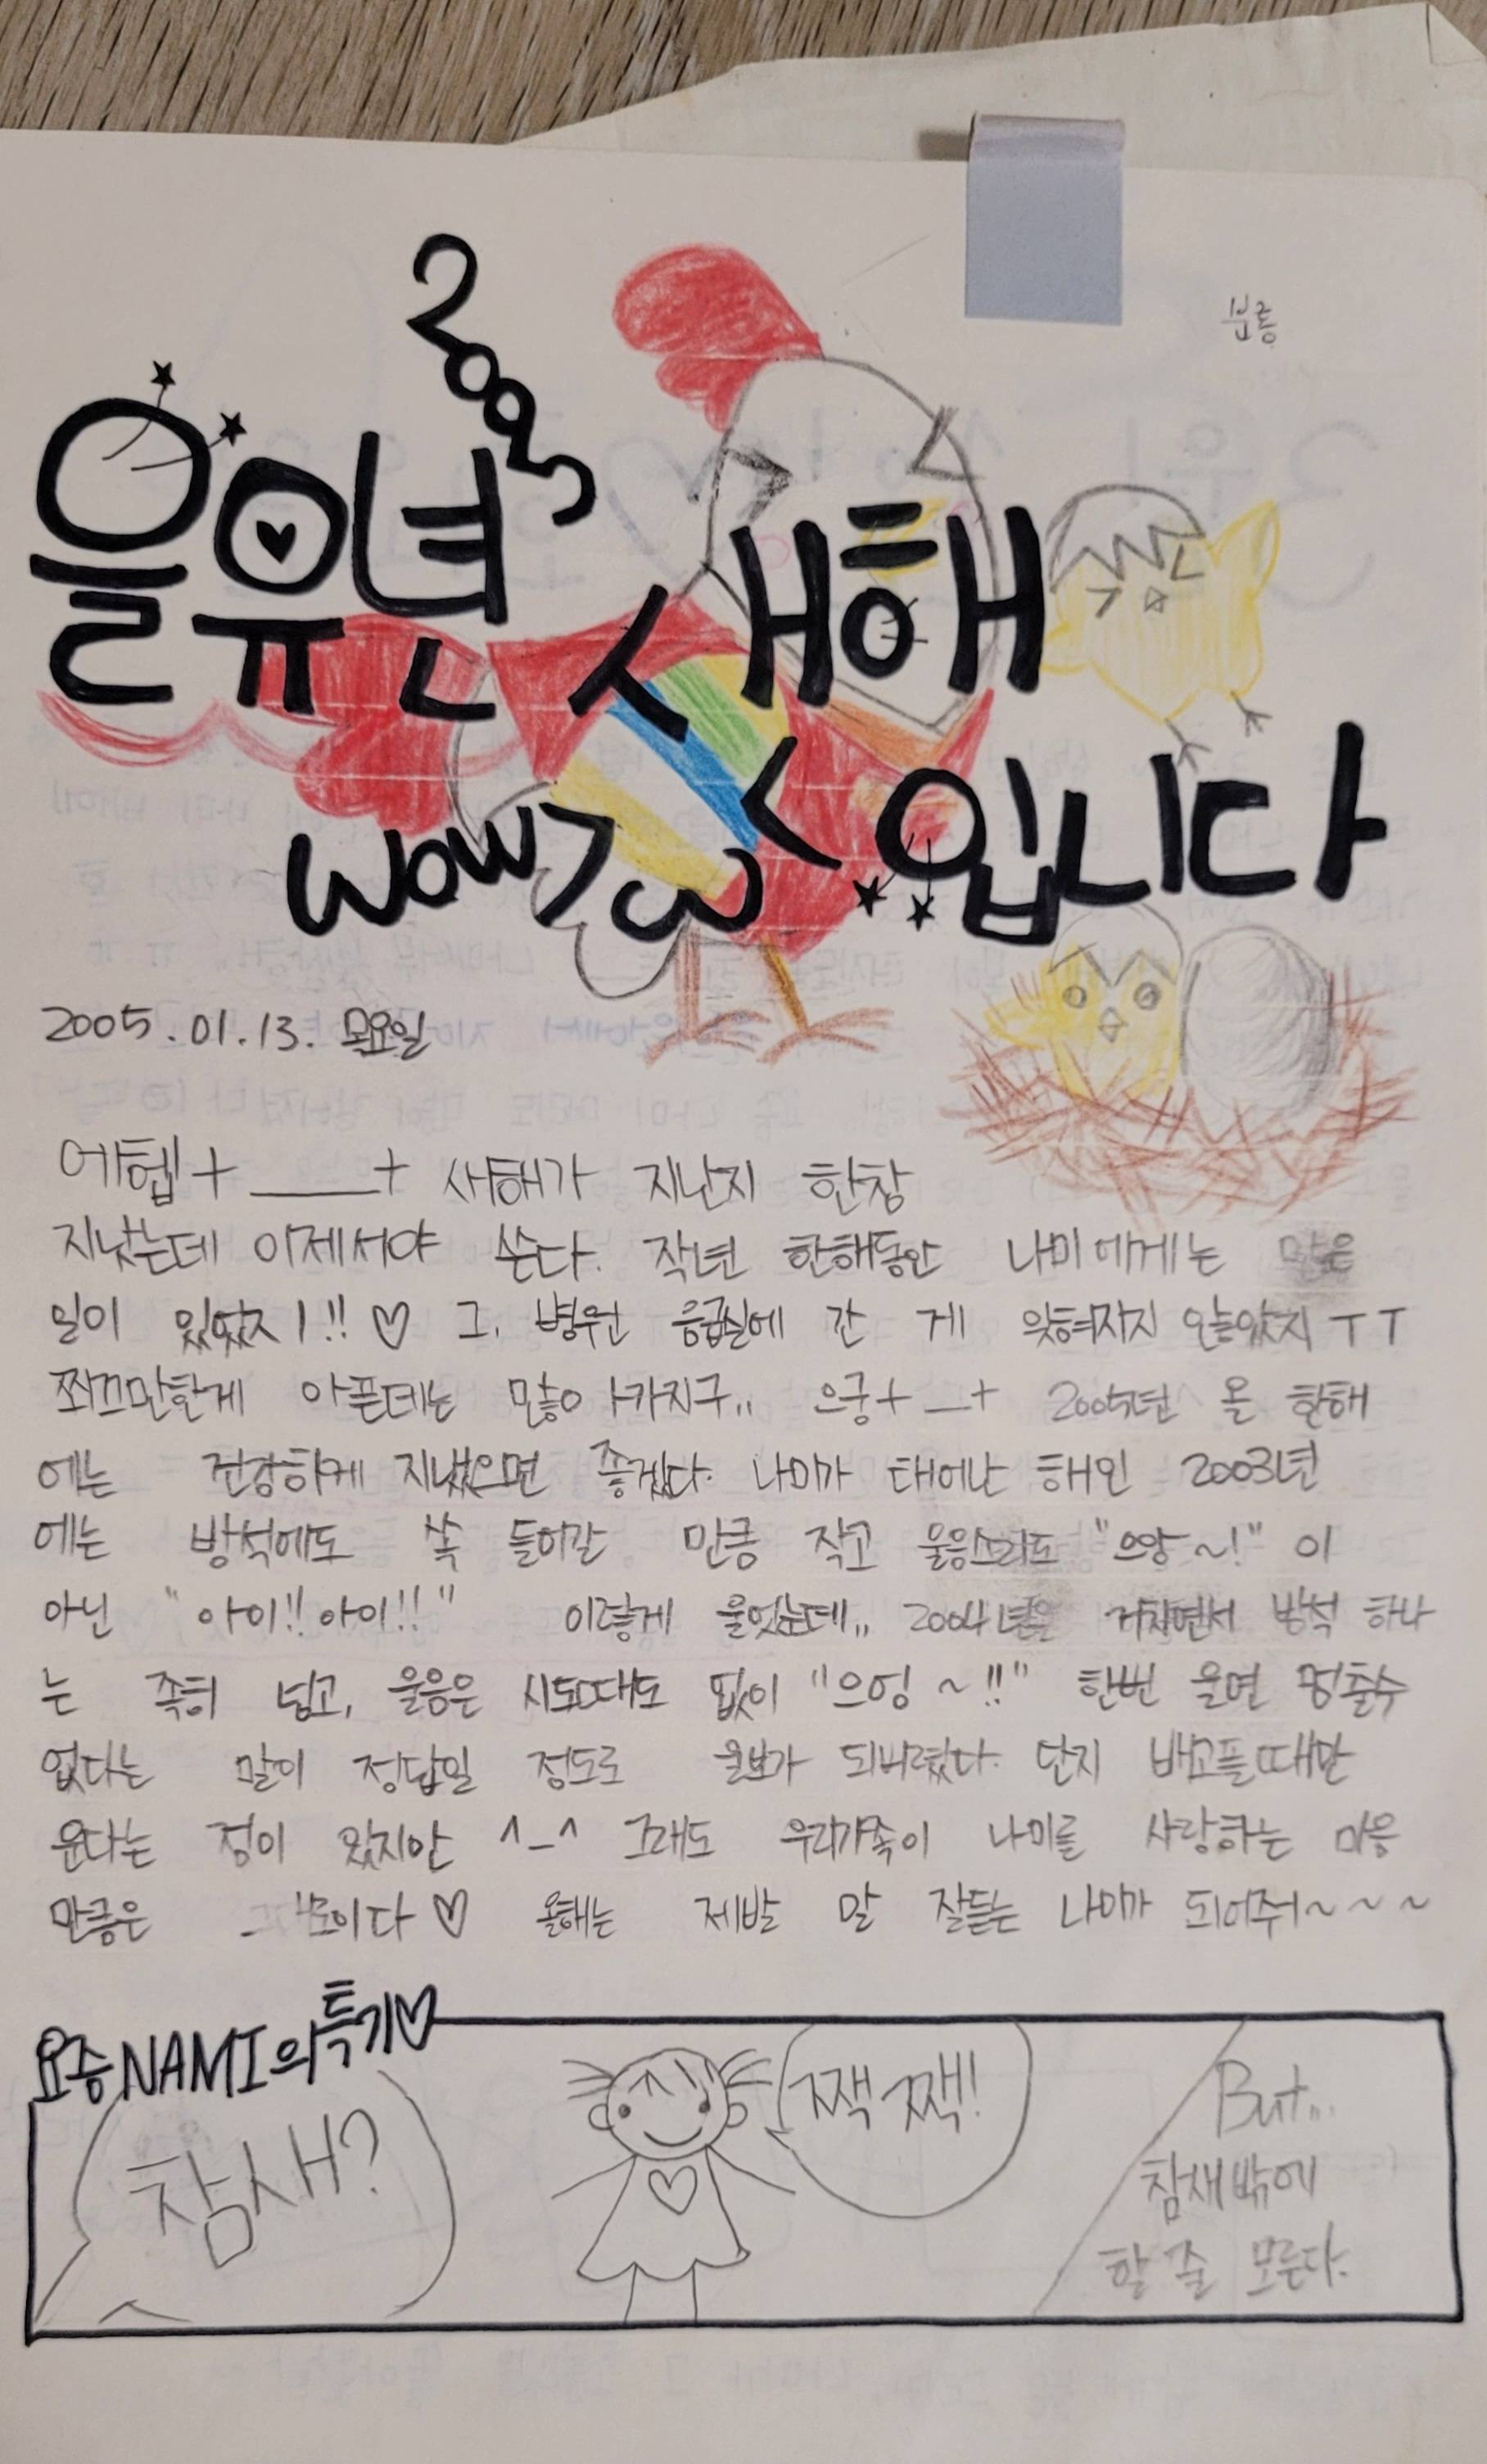 2005
을유년 새해
입니다
wow >ω<
2005.01.13. 목요일
에헵+____+ 새해가 지난지 한창
지났는데 이제서야 쓴다. 작년 한해동안 나미에게는 많은
일이 있었지!!! ♡ 그, 병원 응급실에 간 게 잊혀지지 않았지 ㅜㅜ
쬐끄만한게 아픈데는 많아 가지구.. 으궁+_+ 2005년 올 한해
에는 건강하게 지냈으면 좋겠다. 나미가 태어난 해인 2003년
에는 방석에도 쏙 들어갈 만큼 작고 울음소리도 "으앙~!" 이
아닌 "아이!! 아이!!" 이렇게 울었는데,, 2004년을 거치면서 방석 하나
는 족히 넘고, 울음은 시도때도 없이 "으엉~!!" 한번 울면 멈출수
없다는 말이 정답일 정도로 울보가 되버렸다. 단지 배고플때만
운다는 점이 있지만 ^_^ 그래도 우리가족이 나미를 사랑하는 마음
만큼은 ♡ 올해는 제발 말 잘듣는 나미가 되어줘~~~
요즘 NAMI의 특기♡
참새?
짹 짹!
But...
참새밖에
할 줄 모른다.